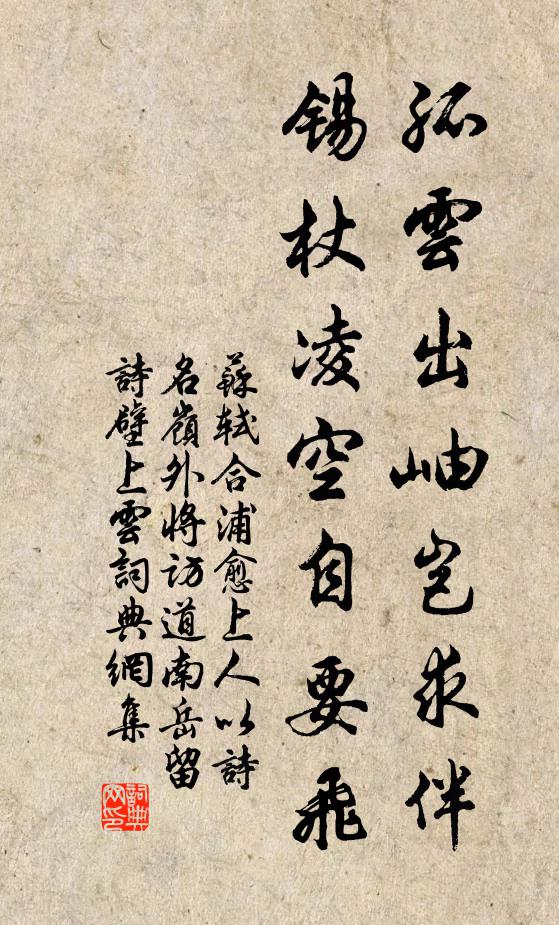 孤雲出岫豈求伴
錫杖凌空自要飛
蘇軾合浦愈上人以詩
名嶺外將訪道南岳留
詩壁上雲詞典網集
詞典
网印